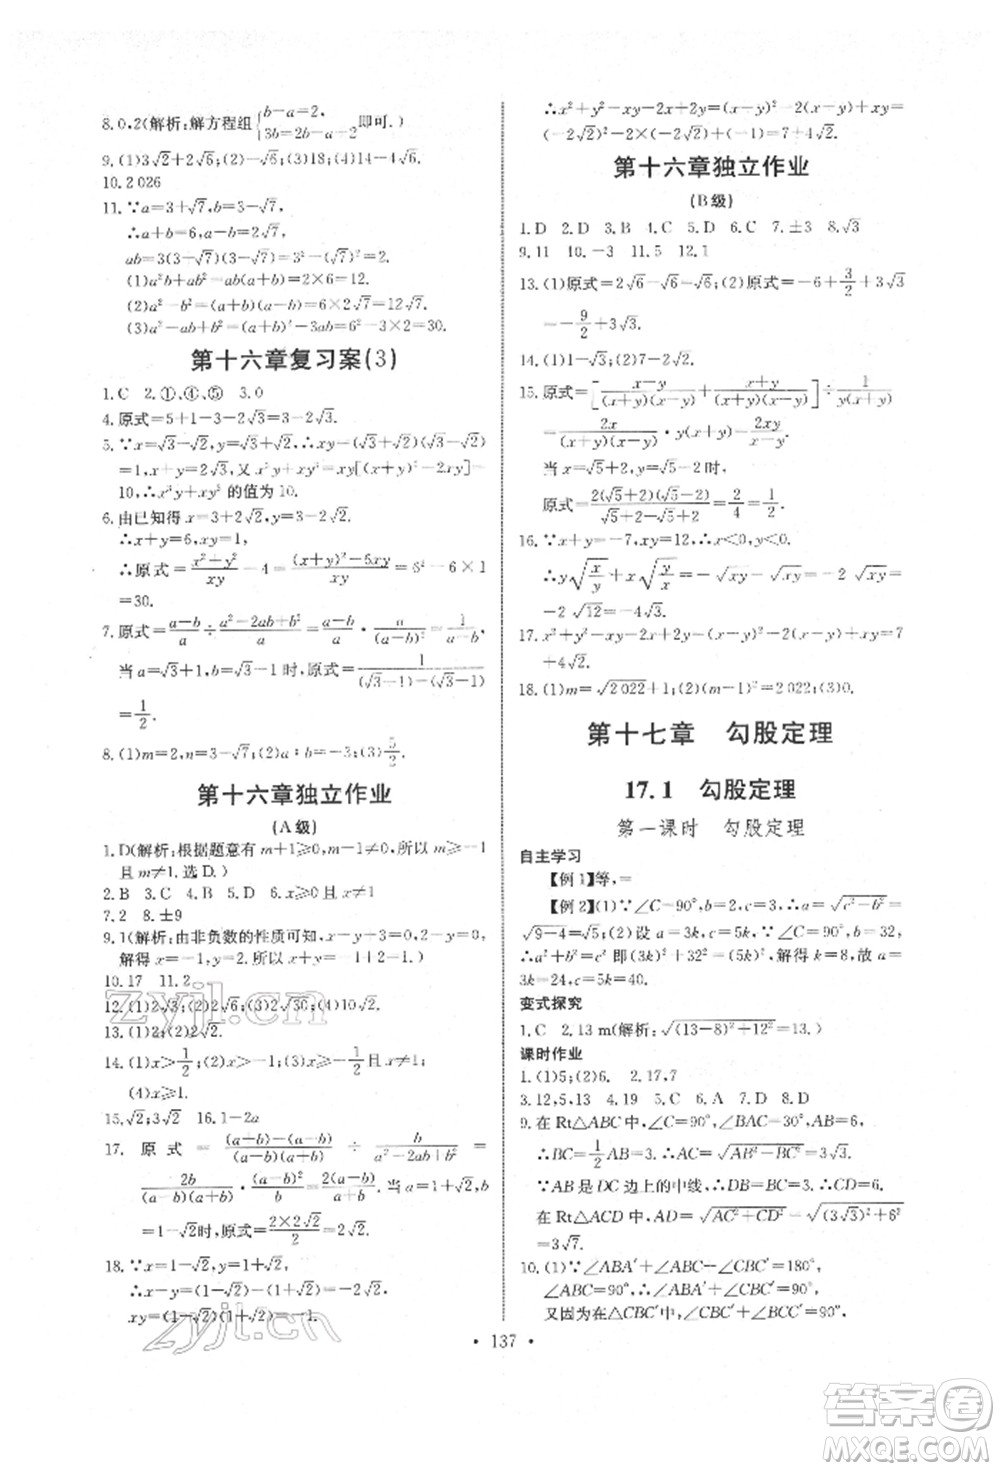 8.0,2(解析:解方程组{b-a=2, 3b=2b-a-2即可.)
9.(1)3√2+2√6;(2)-√6;(3)18;(4)-√6.
10.2 026
11.∵a=3+√7,b=3-√7,
∴a+b=6,a-b=2√7,
ab=3(3-√7)(3+√7)=3²-(√7)²=2.
(1)a²b+ab²=ab(a+b)=2×6=12.
(2)a²-b²=(a+b)(a-b)=6×2√7=12√7.
(3)a²-ab+b²=(a+b)²-3ab=6²-3×2=30.
第十六章复习案(3)
1.C 2.①,④,⑤ 3.0
4.原式=5+1-3-2√3=3-2√3.
5.∵x=√3-√2,y=√3+√2,∴xy=(√3-√2)(√3+
√2)=1,x+y=2√3,又x³y+xy³=xy[(x+y)²-2xy]=
10,∴x³y+xy³的值为10.
6.由已知得x=3+2√2,y=3-2√2.
∴x+y=6,xy=1,
∴原式=(x²+y²)/xy-4=((x+y)²-6xy)/xy=6²-6×1
=30.
7.原式=(a-b)/a÷(a²-2ab+b²)/a=(a-b)/a·a/(a-b)²=1/(a-b).
当a=√3+1,b=√3-1时,原式=1/((√3+1)-(√3-1))
=1/2.
8.(1)m=2,n=3-√7;(2)a:b=-3;(3)5/2
第十六章独立作业
(A级)
1.D(解析:根据题意有m+1⩾0,m-1≠0,所以m⩾-1
且m≠1.选D.)
2.B 3.C 4.B 5.D 6.x⩾0且x≠1
7.2 8.±9
9.1(解析:由非负数的性质可知,x-y-3=0,
解得x=-1,y=2,所以x+y=-1+2=1.)
10.17 11.2
12.(1)2√2;(2)2√6;(3)2√30;(4)10√2.
13.(1)2√3;(2)2√2.
14.(1)x>1/2;(2)x>-1;(3)x⩾-1/2且x≠1;
(4)x⩾-1.
15.√2;3√2 16.1-2a
17. 原式=((a+b)-(a-b))/((a-b)(a+b))÷b/(a²-2ab+b²)=
2b/((a-b)(a+b))·(a-b)²/b=2(a-b)/(a+b).当a=1+√2,b
=1-√2时,原式=(2×2√2)/2=2√2.
18.∵x=1-√2,y=1+√2,
∴x-y=(1-√2)-(1+√2)=-2√2,
xy=(1-√2)(1+√2)=-1.
∴x²+y²-xy-2x+2y=(x-y)²-2(x-y)+xy=
(-2√2)²-2×(-2√2)+(-1)=7+4√2.
第十六章独立作业
(B级)
1.D 2.D 3.C 4.A 5.D 6.C 7.±3 8.√3
9.11 10.-3 11.5 12.1
13.(1)原式=2√6-√6-√6=0;(2)原式=-6+3/2+3√3
=-9/2+3√3.
14.(1)1-√3;(2)1+√2.
15.原式=[(x-y)/((x+y)(x-y))+(x+y)/((x+y)(x-y))]÷1/(y(x+y))=
2x/((x+y)(x-y))·y(x+y)=2xy/(x-y).
当x=√5+2,y=√5-2时,
原式=2(√5+2)(√5-2)/(√5+2-√5+2)=2/4=1/2.
16.∵x+y=-7,xy=12,∴x<0,y<0.
∴y√(x/y)+x√(y/x)=-√xy-√xy=-2√xy=
-2√12=-4√3.
17.x²+y²-xy-2x+2y=(x-y)²-2(x-y)+xy=7
+4√2.
18.(1)m=√2 022+1;(2)(m-1)²=2 022;(3)0.
第十七章 勾股定理
17.1 勾股定理
第一课时 勾股定理
自主学习
【例1】等,=
【例2】(1)∵∠C=90°,b=2,c=3,∴a=√(c²-b²)=
√(9-4)=√5;(2)设a=3k,c=5k,∵∠C=90°,b=32,
∴a²+b²=c²即(3k)²+32²=(5k)²,解得k=8,故a=
3k=24,c=5k=40.
变式探究
1.C 2.13 m(解析:√((13-8)²+12²)=13.)
课时作业
1.(1)5;(2)6. 2.17,7
3.12,5,13 4.19 5.C 6.A 7.D 8.D
9.在Rt△ABC中,∠B=90°,∠BAC=30°,AB=6,
∴BC=1/2AC=3,AB=√(AC²-BC²)=3√3.
∵AB是DC边上的中线,∴DB=BC=3,∴CD=6.
在Rt△ACD中,AD=√(AC²+CD²)=√((3√3)²+6²)
=3√7.
10.(1)∵∠ABA′+∠ABC-∠CBC′=180°,
∠ABC=90°,∴∠ABA′+∠CBC′=90°,
又因为在△CBC′中,∠CBC′+∠BCC′=90°,
• 137 •
zyjl.cn
zyjl.cn
答案圈
MXQE.COM